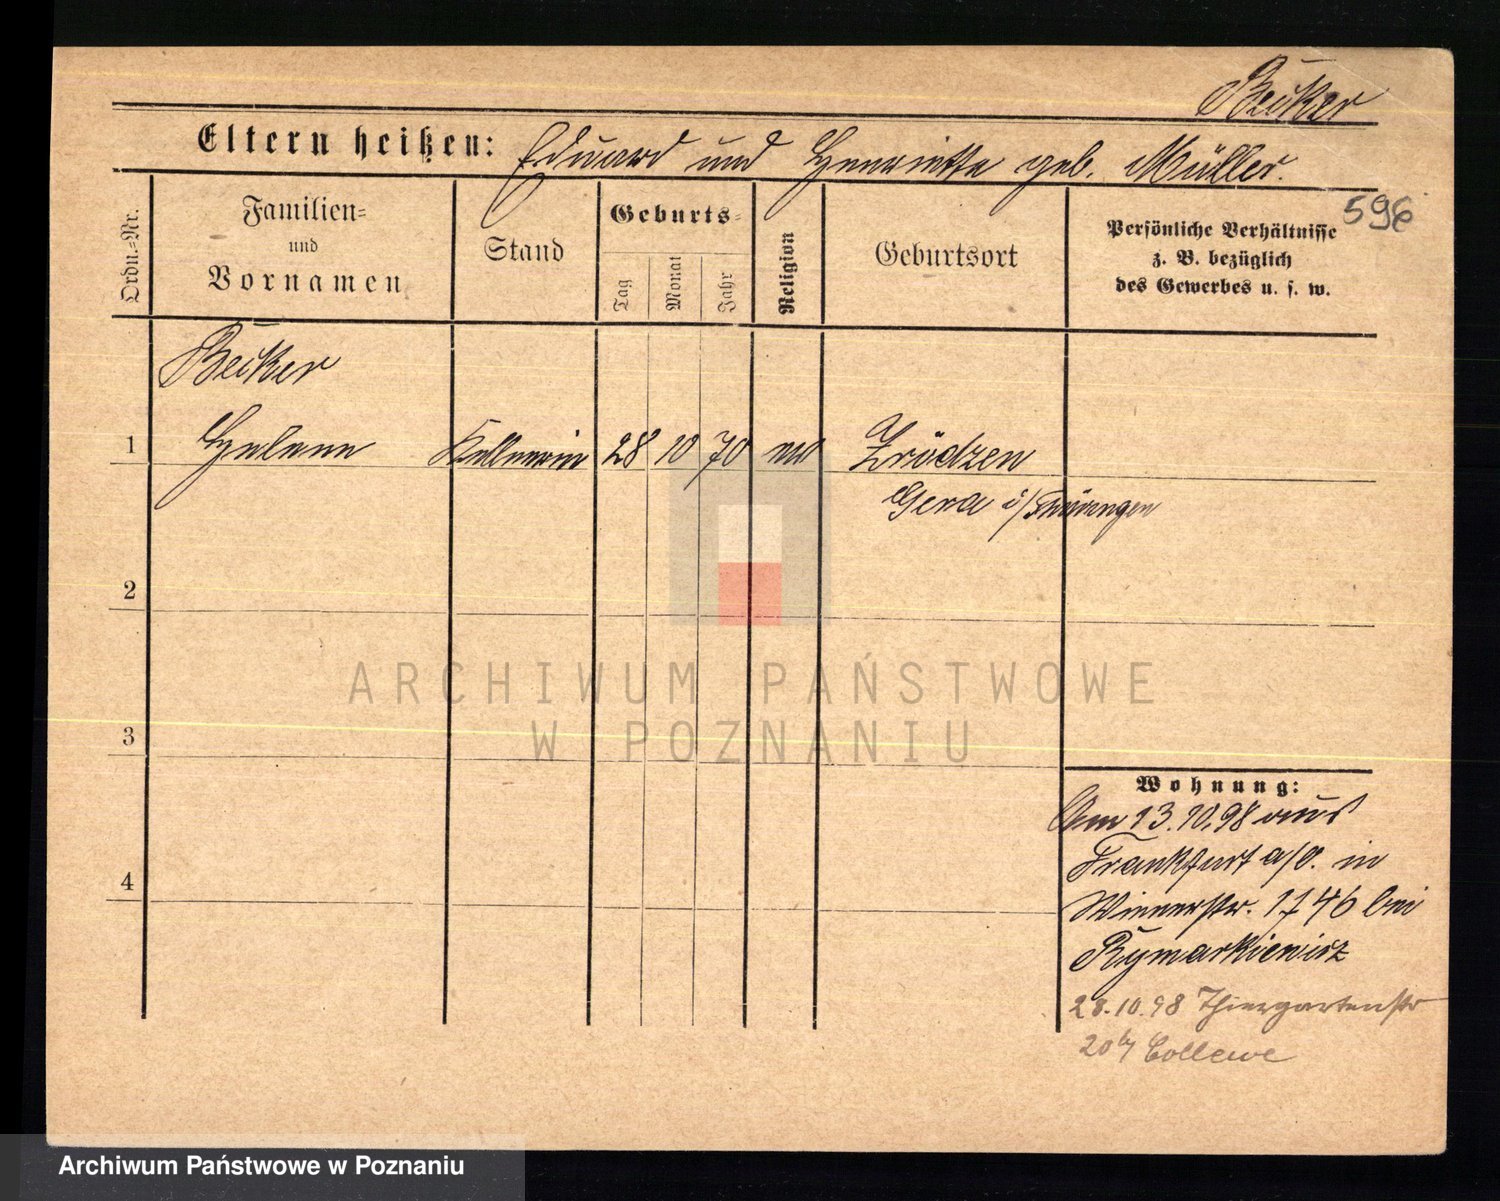 Becker
Eltern heißen: Eduard und Henriette geb. Müller.
596
Ordn.=Nr.
Familien=
und
Vornamen
Stand
Geburts=
Tag
Monat
Jahr
Religion
Geburtsort
Persönliche Verhältnisse
z. B. bezüglich
des Gewerbes u. s. w.
Becker
1 Helene Kellnerin 28 10 70 ev
Gera i/Thüringen
2
ARCHIWUM PAŃSTWOWE
W POZNANIU
3
Wohnung:
Am 13.10.98 aus
Frankfurt a/O. in
Wienerstr. bei
4
Rymarkiewicz
28.10.98 Thiergartenstr
Collewe
Archiwum Państwowe w Poznaniu